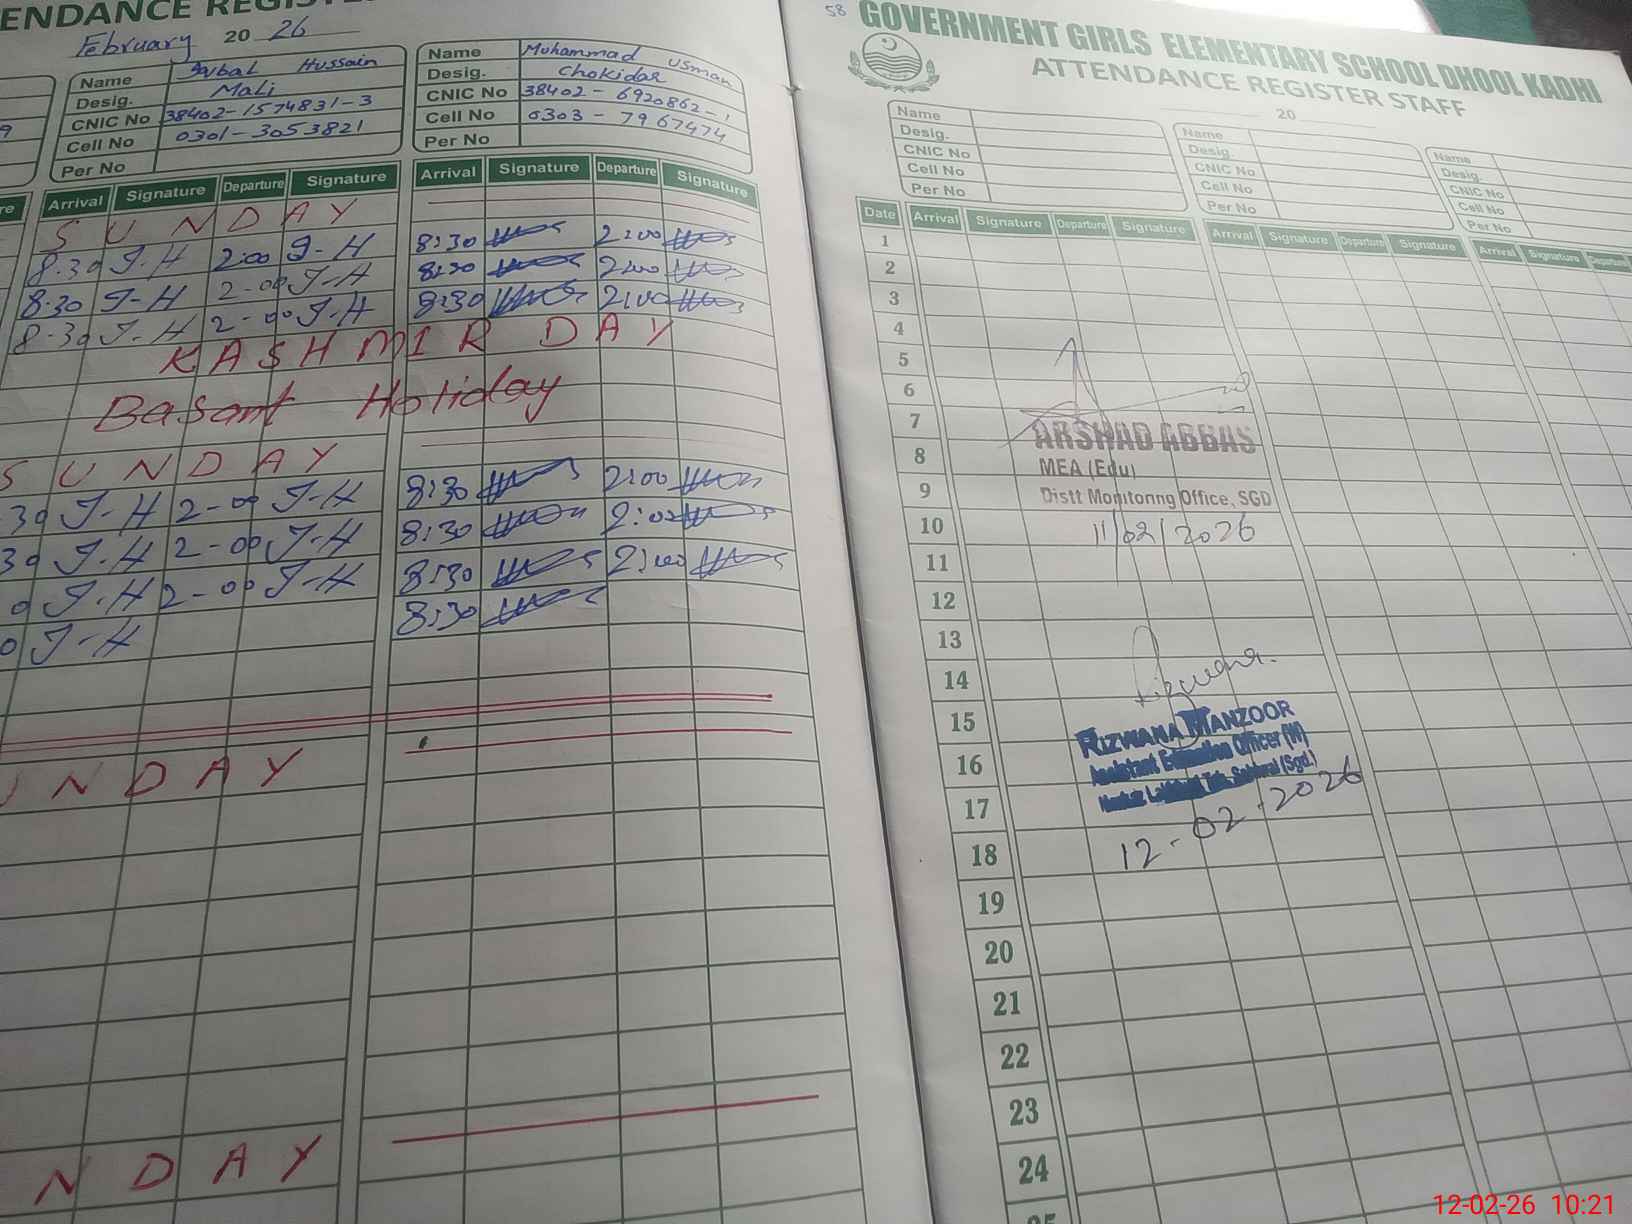 ENDANCE REGISTER
February 20 26
Name Iqbal Hussain
Desig. Mali
CNIC No 38402-1574831-3
Cell No 0301-3053821
Per No
Name Muhammad Usman
Desig. Chokidar
CNIC No 38402-6920862-1
Cell No 0303-7967474
Per No
Arrival Signature Departure Signature Arrival Signature Departure Signature
SUNDAY
8.30 I-H 2:00 I-H 8:30 2:00
8.30 I-H 2-00 I-H 8:30 2:00
8.30 I-H 2-00 I-H 8:30 2:00
KASHMIR DAY
Basant Holiday
SUNDAY
30 I-H 2-00 I-H 8:30 2:00
30 I-H 2-00 I-H 8:30 2:00
0 I-H 2-00 I-H 8:30 2:00
0 I-H 8:30
UNDAY
NDAY
58
GOVERNMENT GIRLS ELEMENTARY SCHOOL DHOOL KADHI
ATTENDANCE REGISTER STAFF
20
Name
Desig.
CNIC No
Cell No
Per No
Name
Desig.
CNIC No
Cell No
Per No
Name
Desig.
CNIC No
Cell No
Per No
Date Arrival Signature Departure Signature Arrival Signature Departure Signature Arrival Signature Departure
1
2
3
4
5
6
7
8
9
10
11
12
13
14
15
16
17
18
19
20
21
22
23
24
25
ARSHAD ABBAS
MEA (Edu)
Distt Monitoring Office, SGD
11/02/2026
Rizwana
RIZWANA MANZOOR
Assistant Education Officer (W)
Teh. Sahiwal (Sgd.)
12-02-2026
12-02-26 10:21